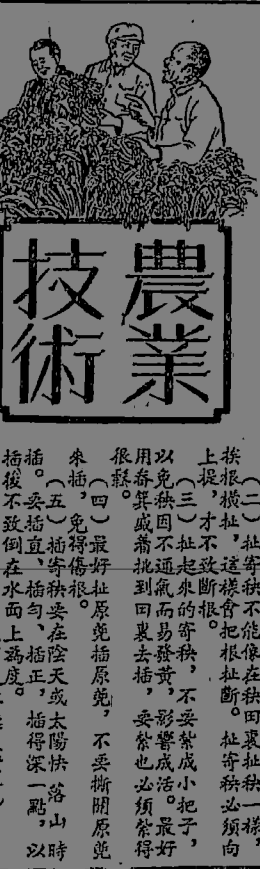 農業
技術
（二）扯寄秧不能像在秧田裏扯秧一樣，
挨根橫扯，這樣會把根扯斷。扯寄秧必須向
上提，才不致斷根。
（三）扯起來的寄秧，不要紮成小把子，
以免秧因不通氣而易發黃，影響成活。最好
用畚箕盛着挑到田裏去插，要紮也必須紮得
很鬆。
（四）最好扯原蔸插原蔸，不要撕開原蔸
來插，免得傷根。
（五）插寄秧要在陰天或太陽快落山時
插。要插直、插勻、插正，插得深一點，以
插後不致倒在水面上爲度。